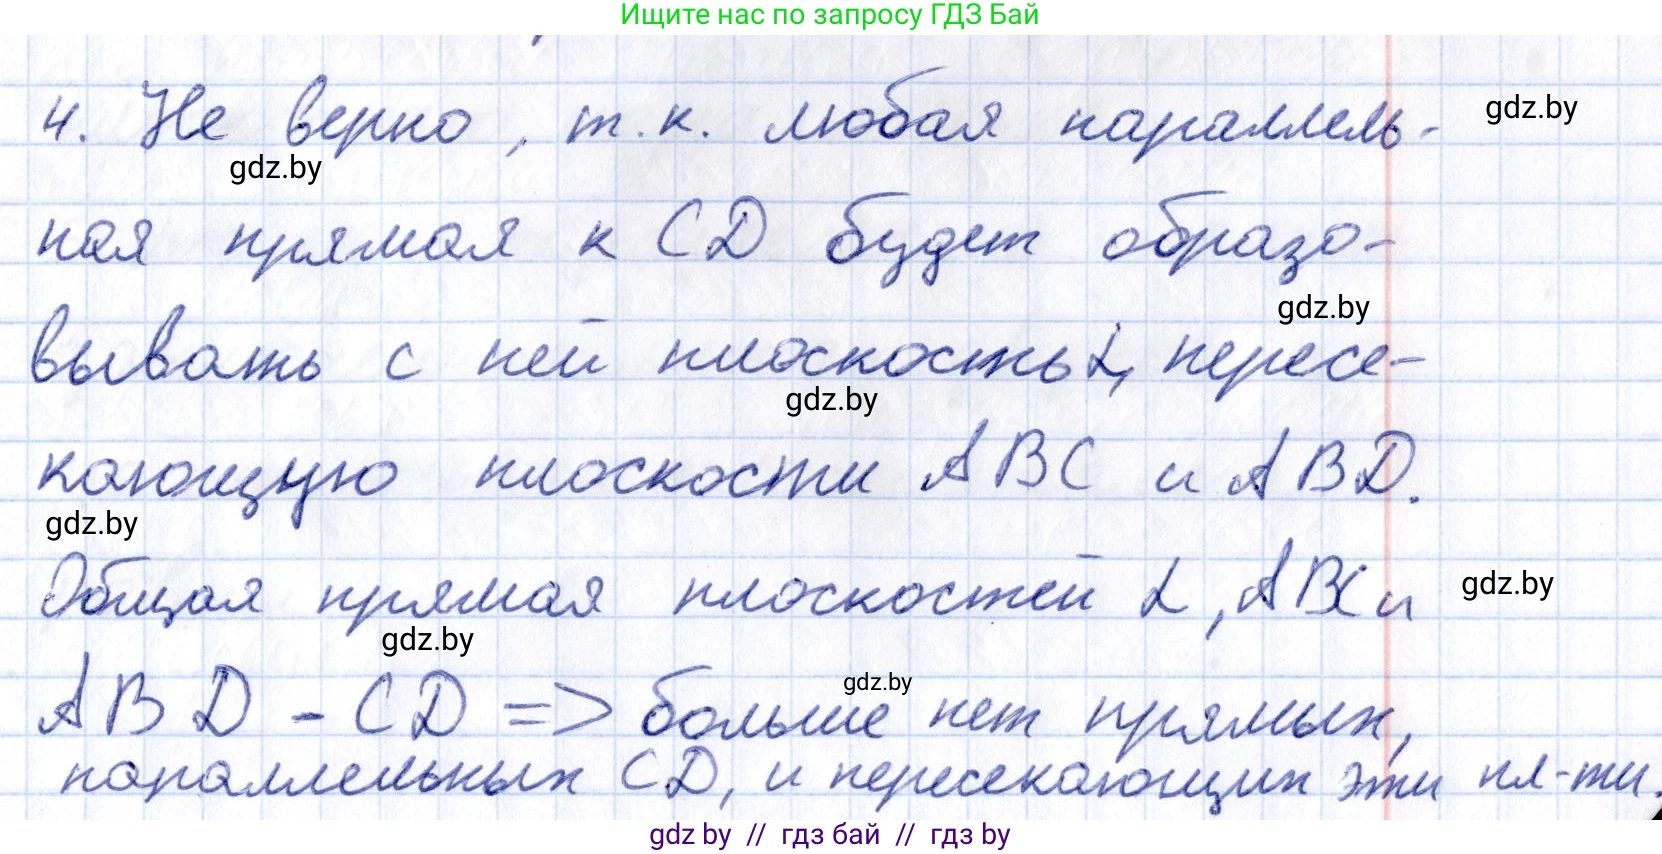 Ищите нас по запросу ГДЗ Бай
4. Не верно, т.к. любая параллель-
gdz.by
gdz.by
ная прямая к CD будет образо-
gdz.by
вывать с ней плоскость α, пересе-
gdz.by
кающую плоскости ABC и ABD.
gdz.by
Общая прямая плоскостей α, ABC и
gdz.by
gdz.by
gdz.by
ABD - CD => больше нет прямых,
параллельных CD, и пересекающих эти пл-ти.
gdz by // гдз бай // гдз by